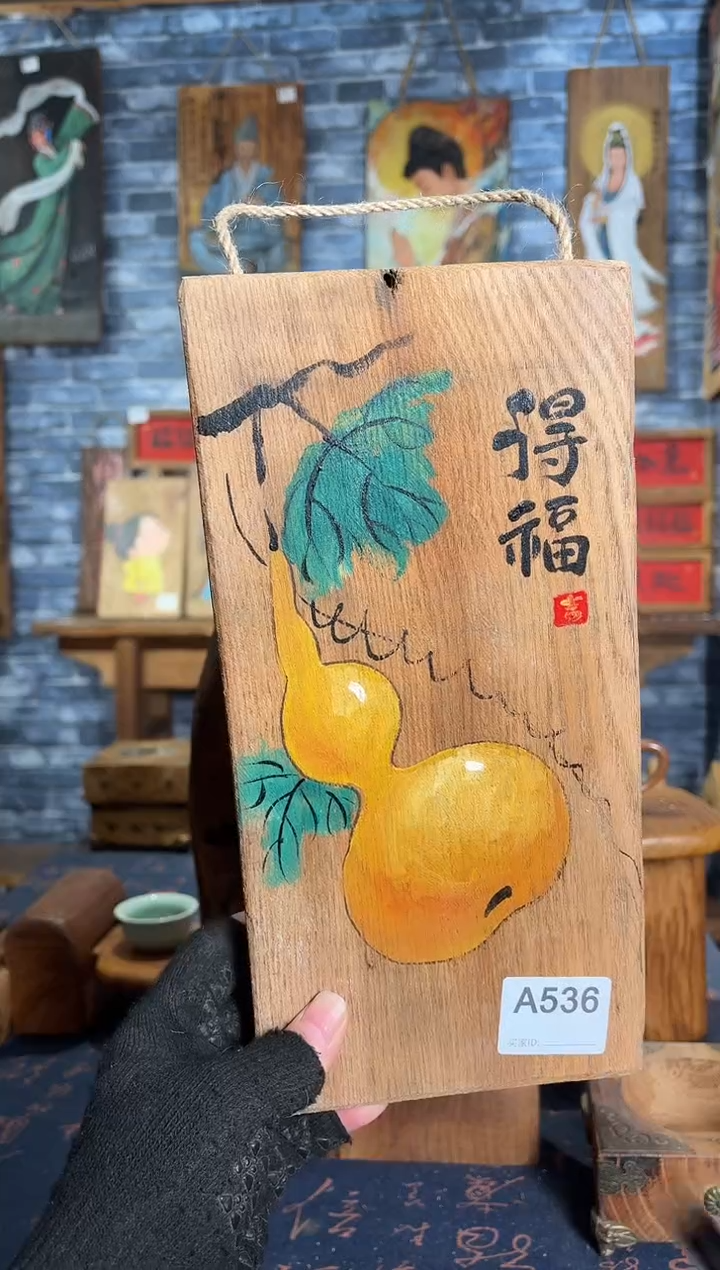 得福
吉
A536
买家ID: